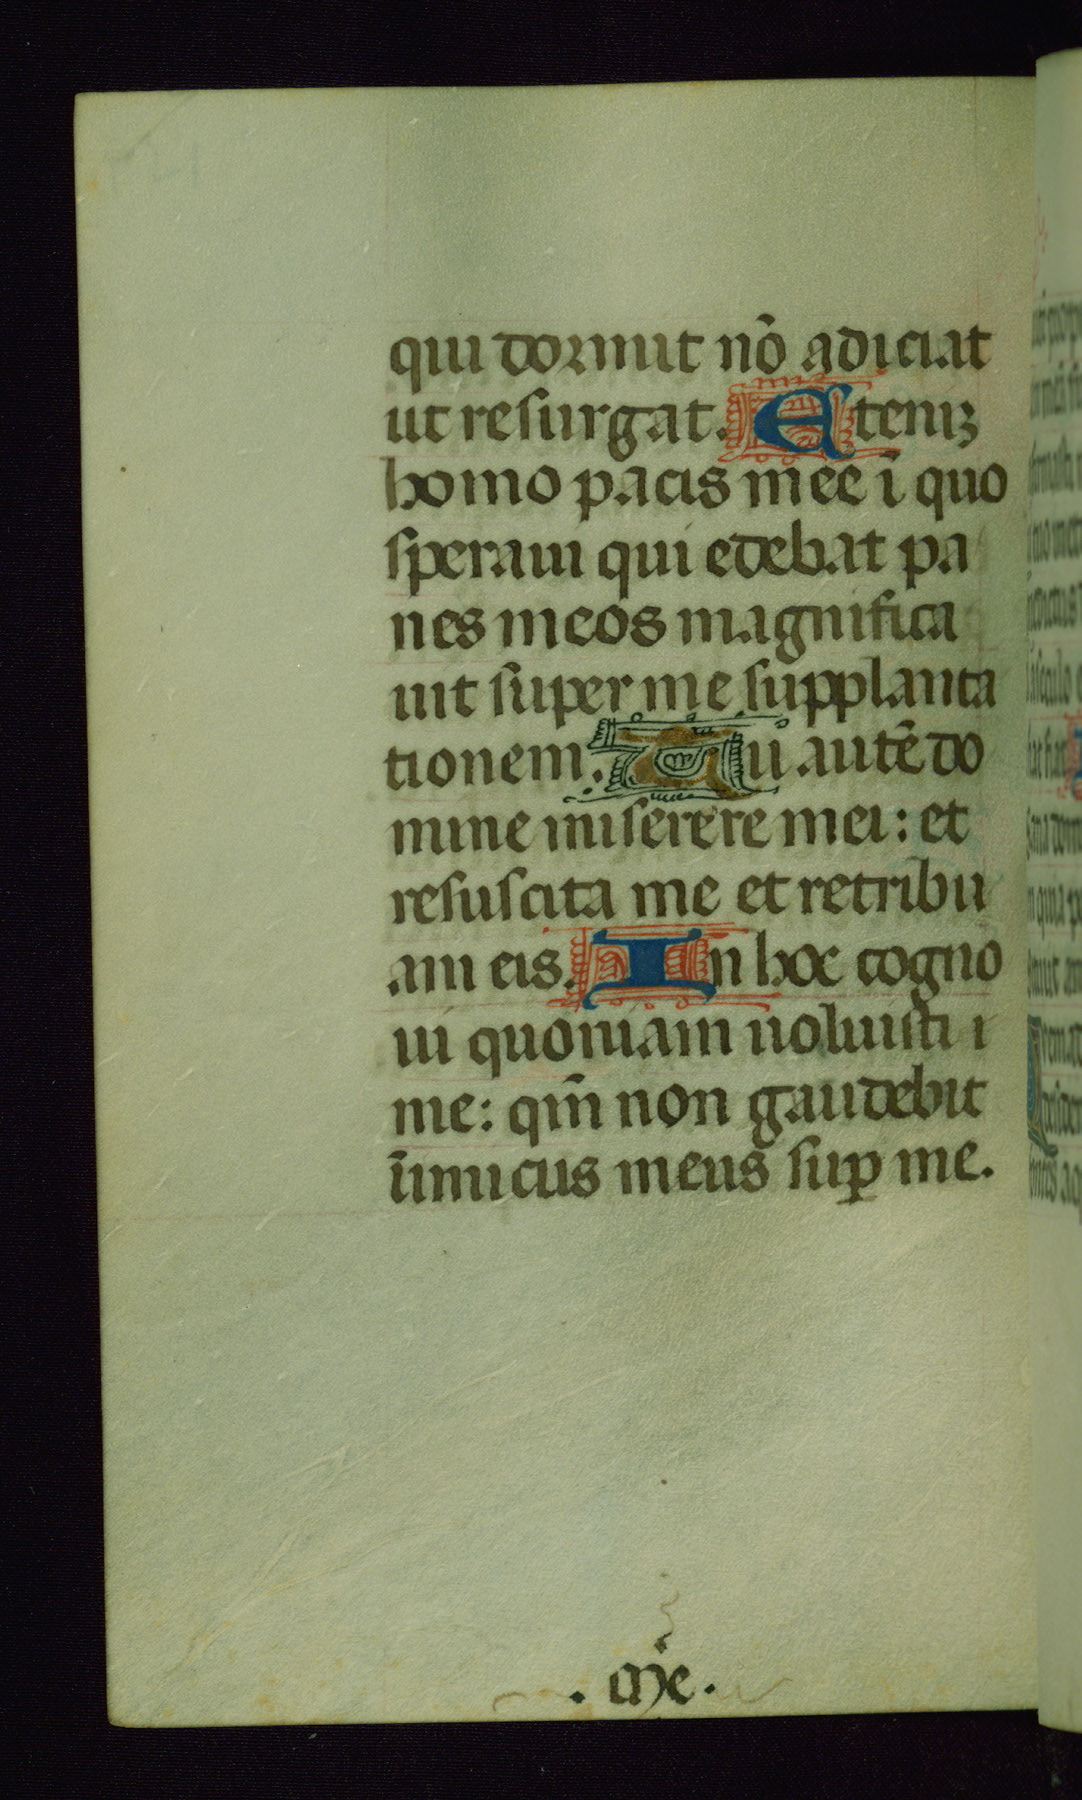 qui dormit nō adiciat
ut resurgat. Eteniꝫ
homo pacis mee ī quo
speraui qui edebat pa
nes meos magnifica
uit super me supplanta
tionem. Tu autē do
mine miserere mei: et
resuscita me et retribu
am eis. In hoc cogno
ui quoniam uoluisti i
me: qm̄ non gaudebit
īimicus meus suꝑ me.
. Me .